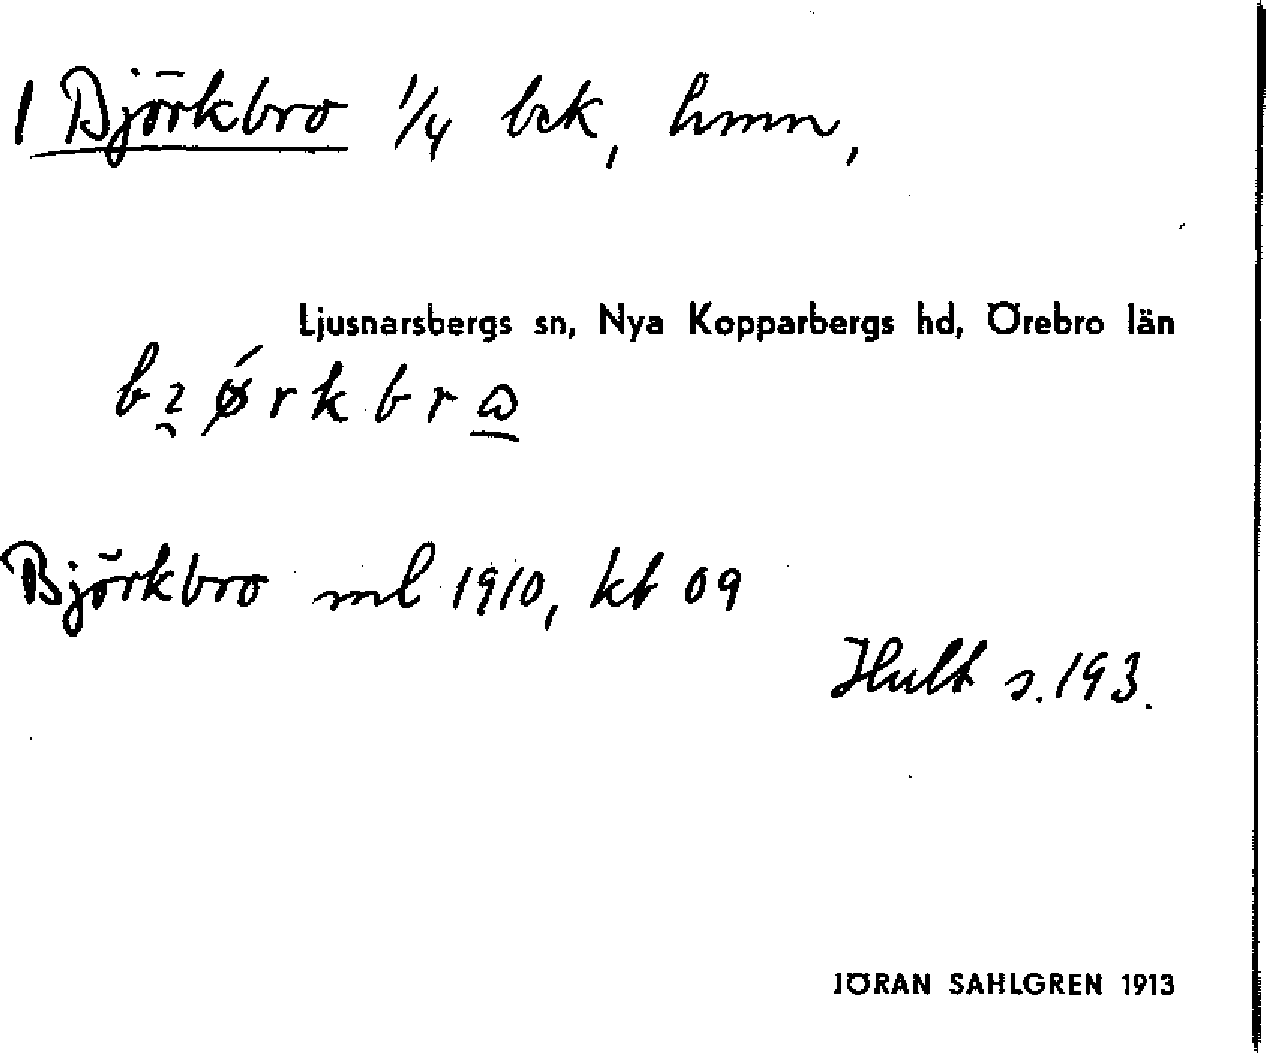 1 Björkbro 1/4 bck, hmn,
Ljusnarsbergs sn, Nya Kopparbergs hd, Örebro län
Björkbro ml 1910, kb 09
Hult s. 193.
JÖRAN SAHLGREN 1913